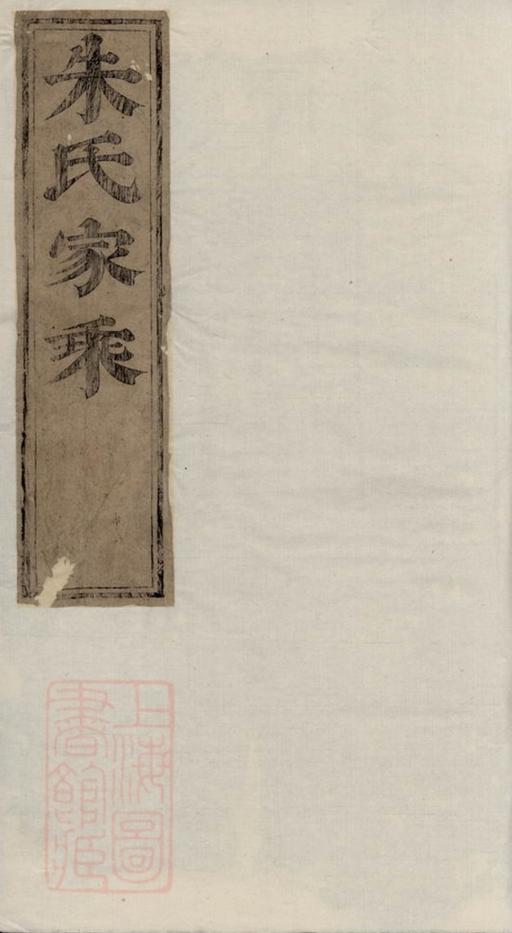 朱氏家乘
上海圖
書館藏